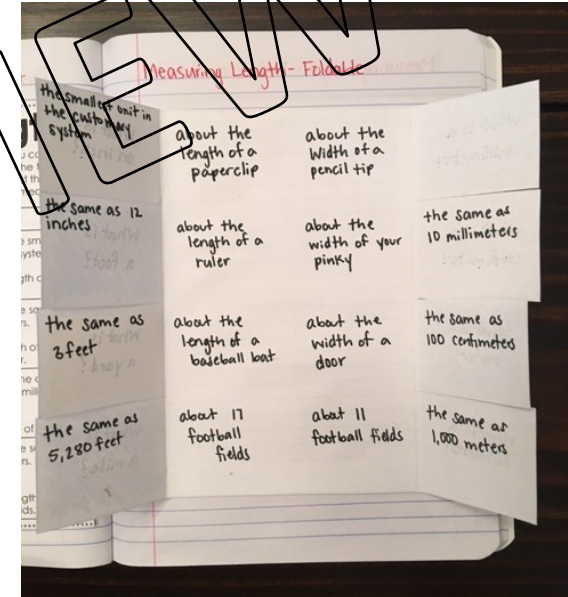 Measuring Length - Foldable
the smallest unit in
the customary
system
about the
length of a
paperclip
about the
width of a
pencil tip
the same as 12
inches
about the
length of a
ruler
about the
width of your
pinky
the same as
10 millimeters
the same as
3 feet
about the
length of a
baseball bat
about the
width of a
door
the same as
100 centimeters
the same as
5,280 feet
about 17
football
fields
about 11
football fields
the same as
1,000 meters